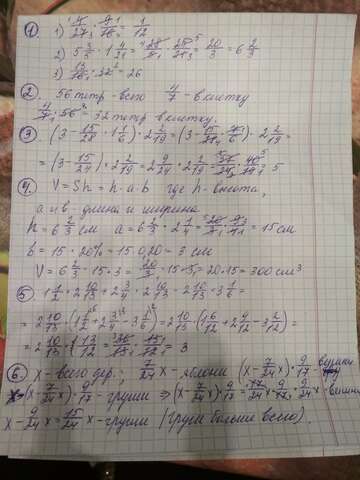 1. 1) 4/27 · 9/16 = 1/12
2) 5 3/5 · 1 4/21 = 28/5 · 25/21 = 20/3 = 6 2/3
3) 13/16 · 32 = 26
2. 56 тетр - всего 4/7 - в клетку
4/7 · 56 = 32 тетр в клетку.
3. (3 - 15/28 · 1 1/6) · 2 2/19 = (3 - 15/28 · 7/6) · 2 2/19 =
= (3 - 15/24) · 2 2/19 = 2 9/24 · 2 2/19 = 57/24 · 40/19 = 5
4. V = Sh = h · a · b где h - высота,
a и b - длина и ширина
h = 6 2/3 см a = 6 2/3 · 2 1/4 = 20/3 · 9/4 = 15 см
b = 15 · 20% = 15 · 0,20 = 3 см
V = 6 2/3 · 15 · 3 = 20/3 · 15 · 3 = 20 · 15 = 300 см³
5 1 1/2 · 2 10/13 + 2 3/4 · 2 10/13 - 2 10/13 · 3 1/6 =
= 2 10/13 · (1 1/2 + 2 3/4 - 3 1/6) = 2 10/13 (1 6/12 + 2 9/12 - 3 2/12) =
= 2 10/13 · 1 1/12 = 36/13 · 13/12 = 3
6. x - всего дер.; 7/24 x - яблони (x - 7/24 x) · 9/17 -
(x - 7/24 x) · 9/17 - груши ⇒ (x - 7/24 x) · 9/17 = 17/24 x · 9/17 = 9/24 x - вишни
x - 9/24 x = 15/24 x - груши (груш больше всего).